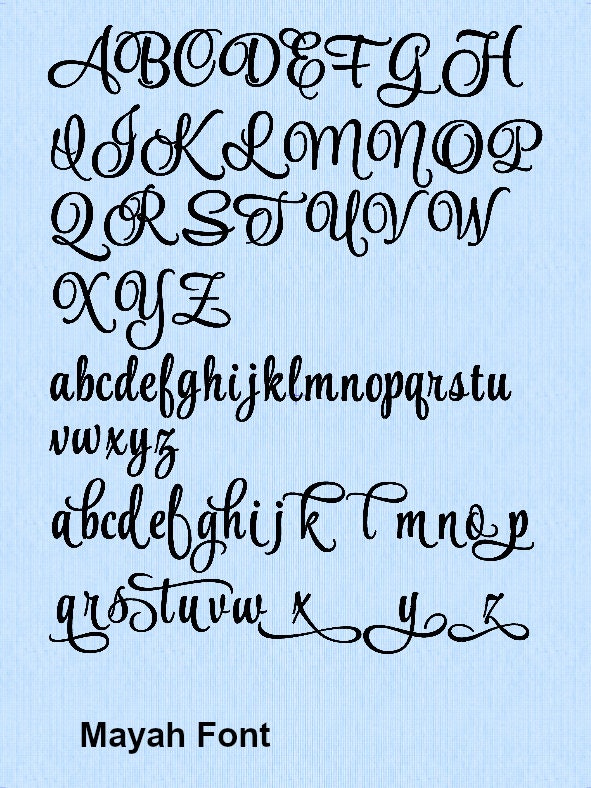 ABCDEFGH
IJKLMNOP
QRSTUVW
XYZ
abcdefghijklmnopqrstu
vwxyz
abcdefghijklmnop
qrstuvwxyz
Mayah Font